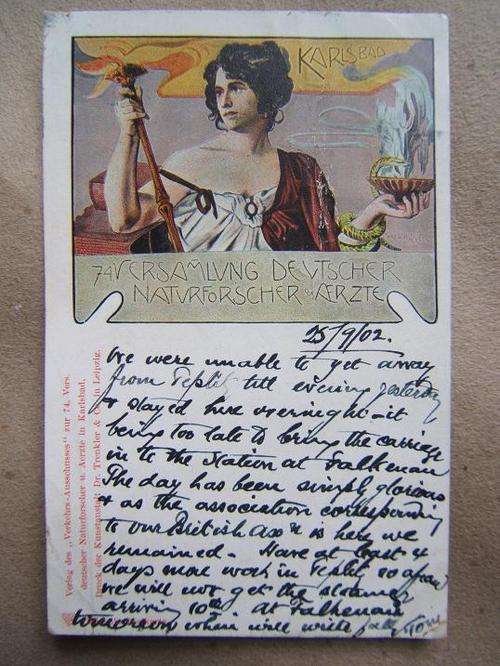 KARLSBAD
74 VERSAMLUNG DEUTSCHER
NATURFORSCHER u. ÆRZTE
25/9/02.
We were unable to get away
from Teplitz till evening yesterday
& stayed here overnight - it
being too late to bring the carriage
in to the Station at Falkenau
The day has been simply glorious
& as the association corresponding
to our British Assn is here we
remained. Have at least 4
days more work in Teplitz so
we will not get the steamer
arriving 10th. At Falkenau
tomorrow when will write fully
Verlag des „Verkehrs-Ausschusses" zur 74. Vers.
deutscher Naturforscher u. Aerzte in Karlsbad.
Druck der Kunstanstalt Dr. Trenkler & Co. in Leipzig.